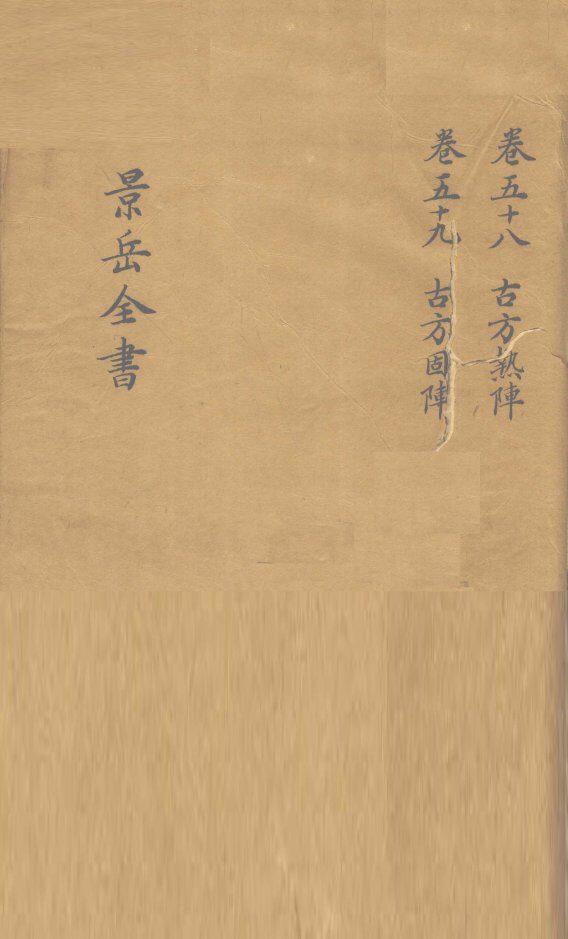 卷五十八 古方熱陣
卷五十九 古方固陣
景岳全書